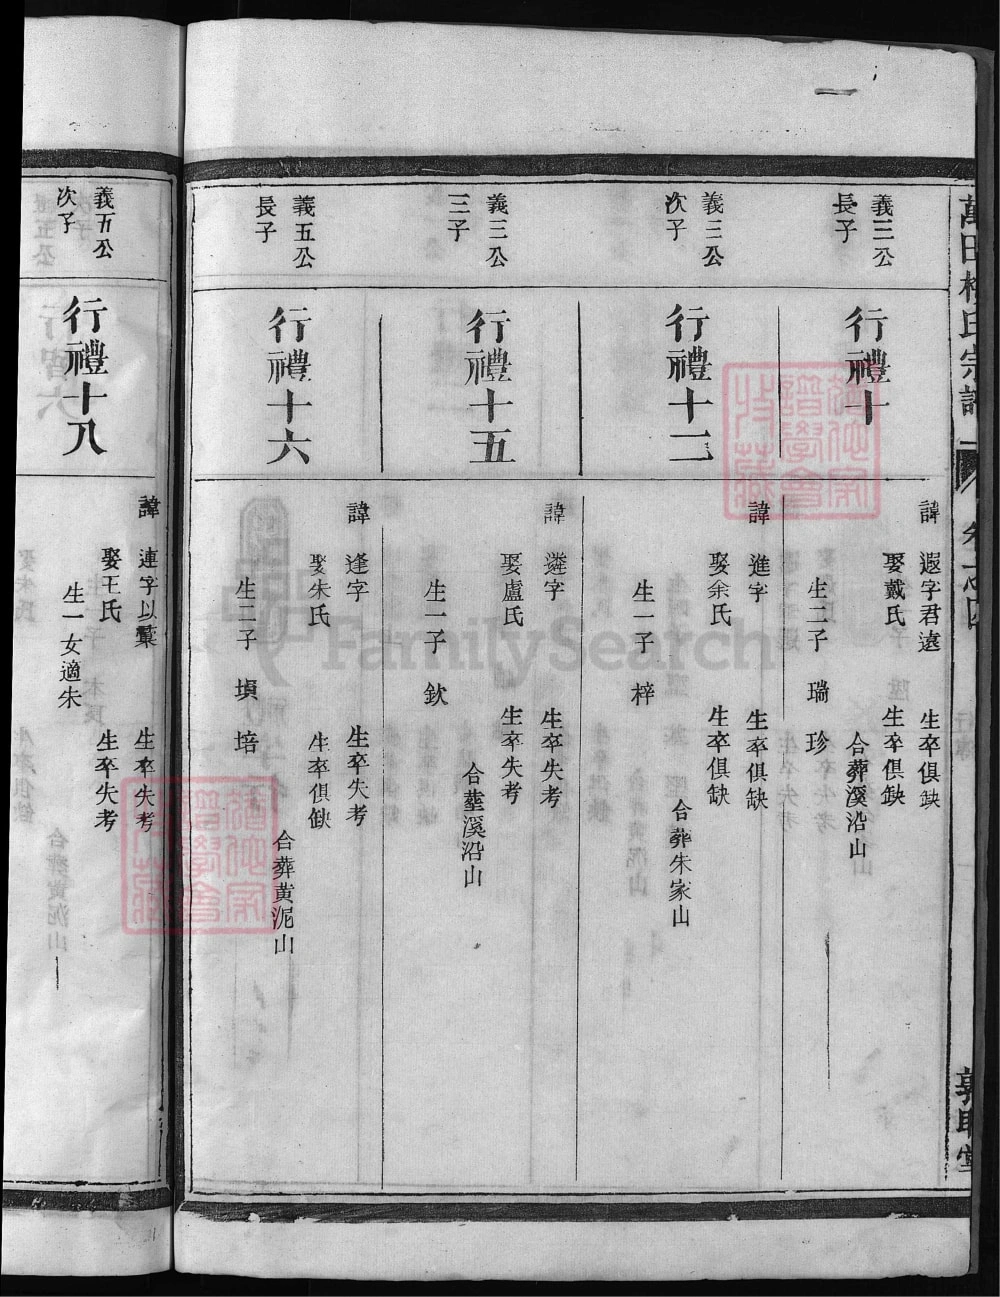 義三公
長子
行禮十
諱 遐字君遠 生卒俱缺
娶戴氏 生卒俱缺
合葬溪沿山
生二子 瑞 珍
義三公
次子
行禮十二
諱 進字 生卒俱缺
娶余氏 生卒俱缺
合葬朱家山
生一子 梓
義三公
三子
行禮十五
諱 遴字 生卒失考
娶盧氏 生卒失考
合塟溪沿山
生一子 欽
義五公
長子
行禮十六
諱 逢字 生卒失考
娶朱氏 生卒俱缺
合葬黄泥山
生二子 塤 培
義五公
次子
行禮十八
諱 連字以 生卒失考
娶王氏 生卒失考
生一女適朱
合葬黄泥山
FamilySearch